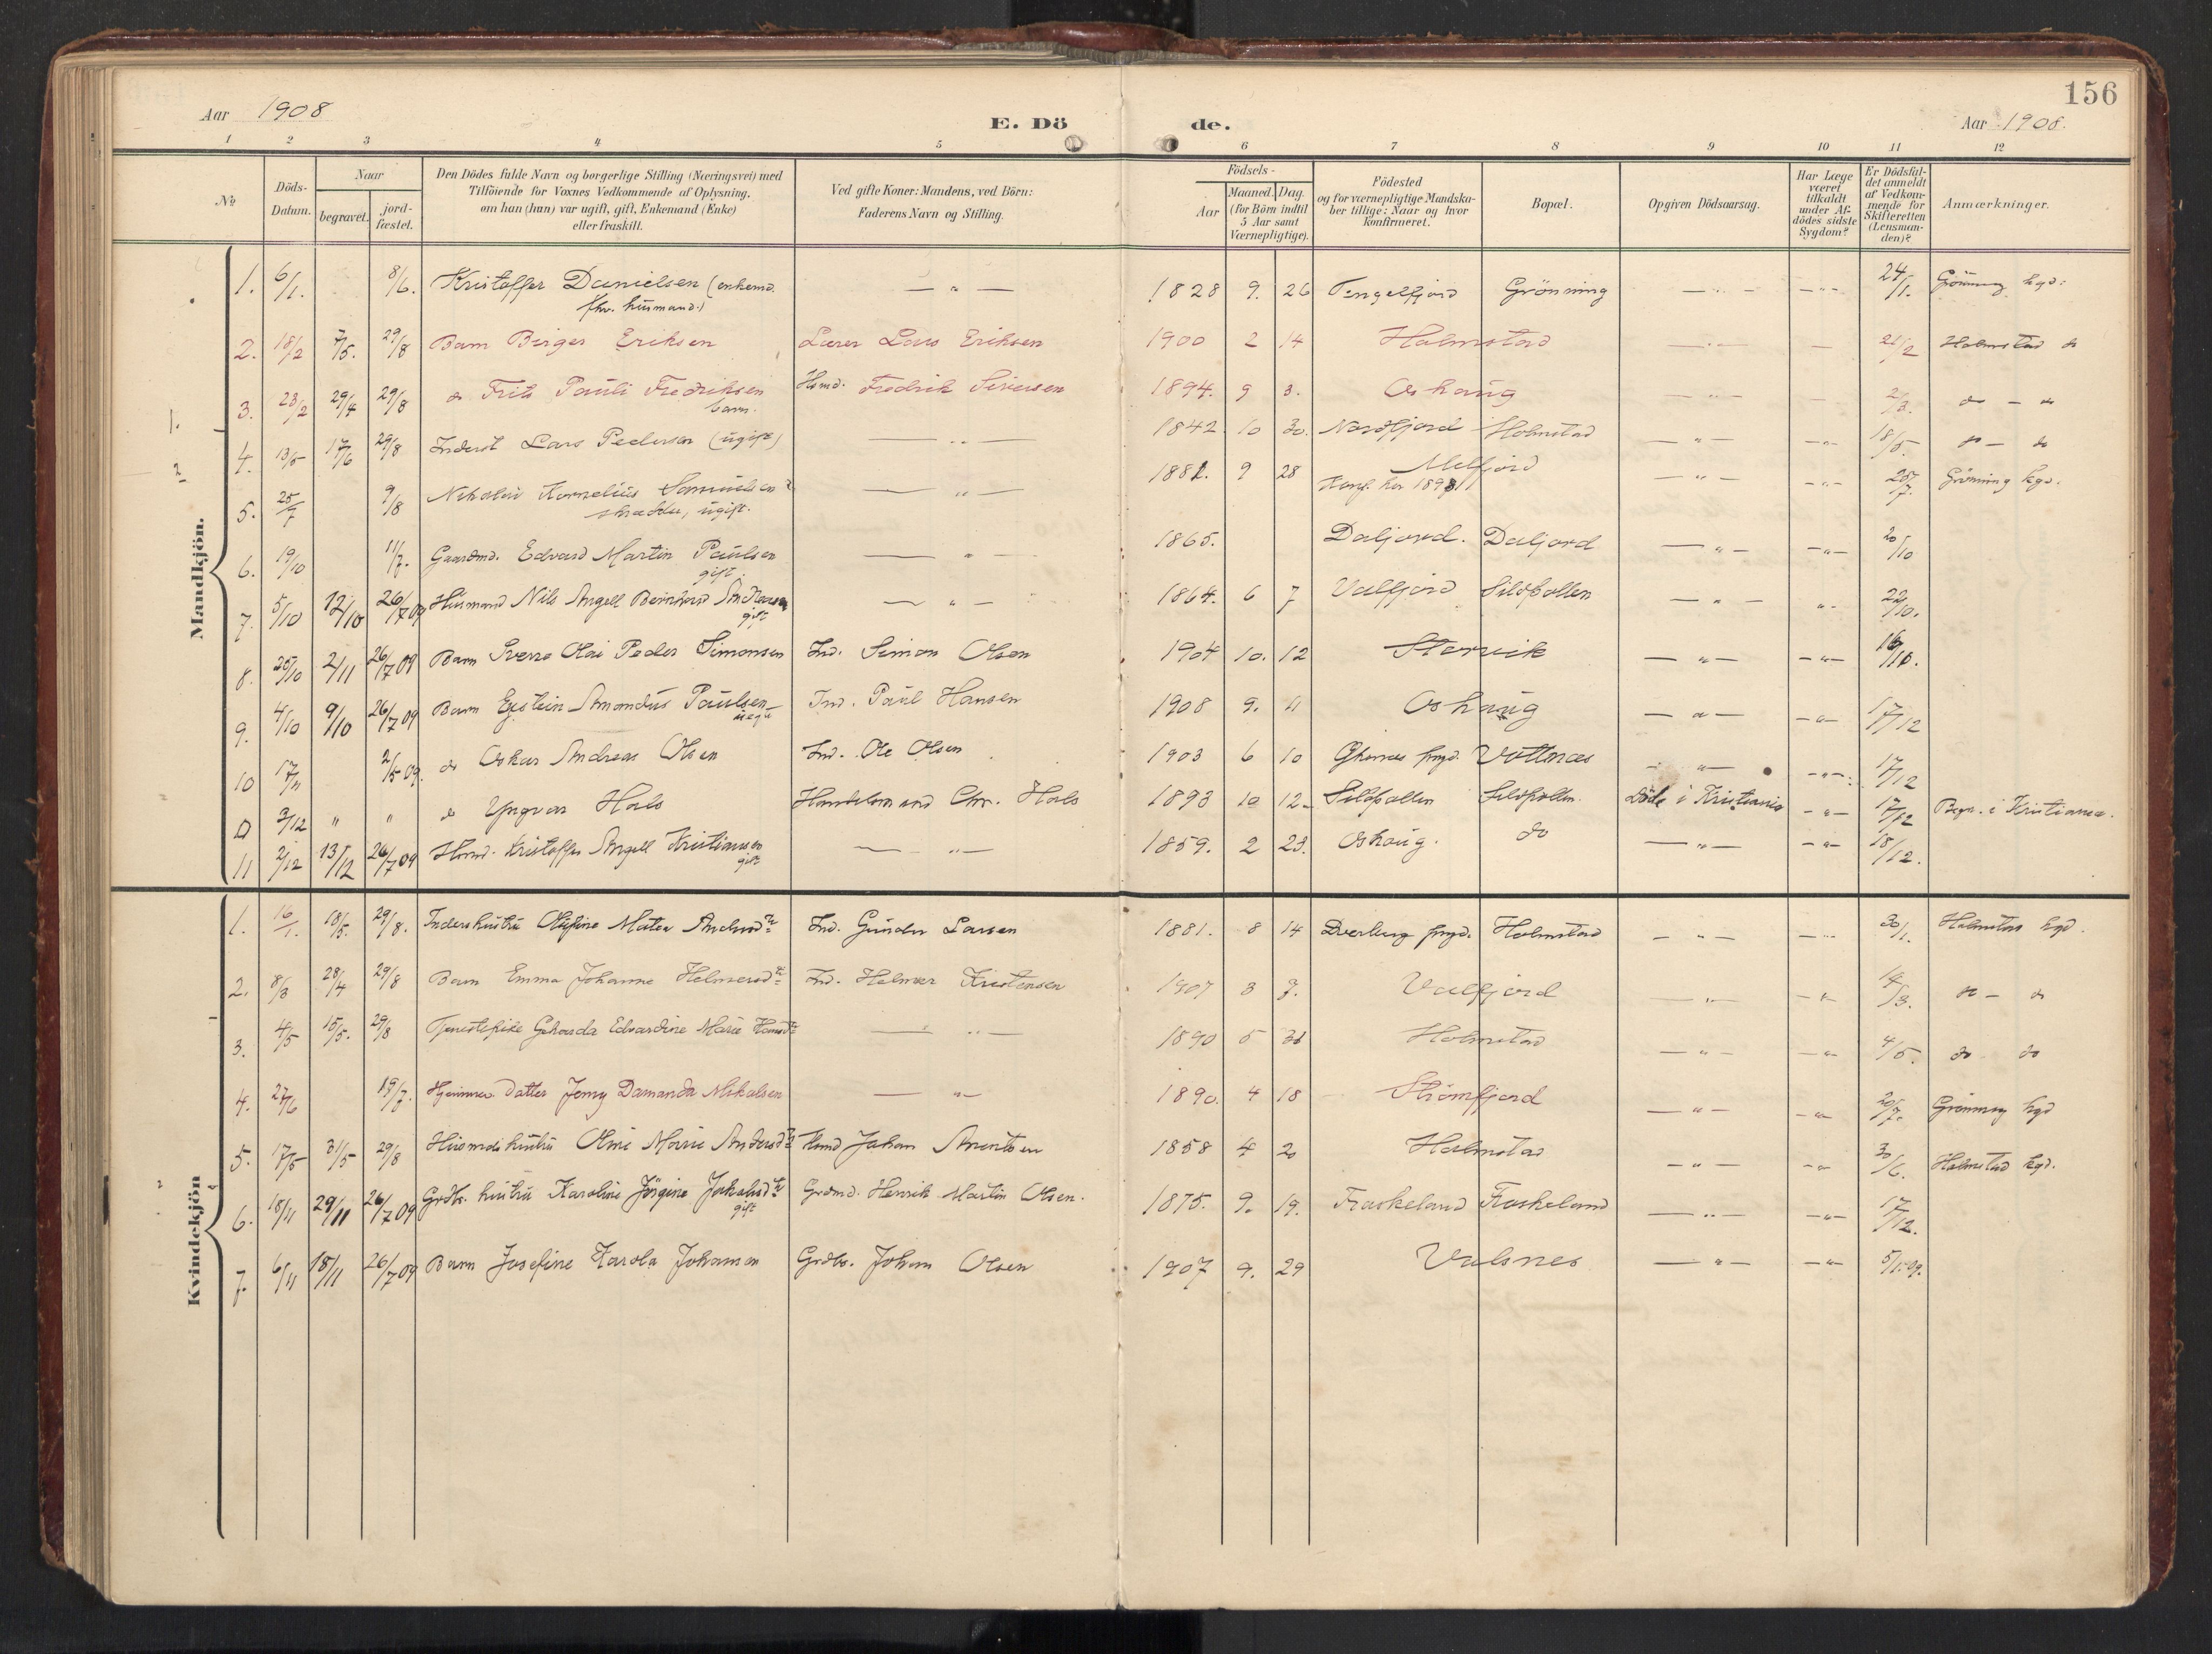 156
Aar 1908
E. Döde.
Aar 1908.
1 2 3 4 5 6 7 8 9 10 11 12
No
Döds-Datum.
Naar
begravet.
jord-fæstet.
Den Dödes fulde Navn og borgerlige Stilling (Næringsvei) med
Tilföiende for Voxnes Vedkommende af Oplysning,
om han (hun) var ugift, gift, Enkemand (Enke)
eller fraskilt.
Ved gifte Koner: Mandens, ved Börn:
Faderens Navn og Stilling.
Födsels-
Aar
Maaned. Dag.
(for Börn indtil
5 Aar samt
Værnepligtige).
Födested
og for værnepligtige Mandska-
ber tillige: Naar og hvor
Konfirmeret.
Bopæl.
Opgiven Dödsaarsag.
Har Læge
været
tilkaldt
under Af-
dödes sidste
Sygdom?
Er Dödsfal-
det anmeldt
af Vedkom-
mende for
Skifteretten
(Lensman-
den)?
Anmærkninger.
Mandkjön.
1. 6/1. 8/6. Kristoffer Danielsen (enkemd. — " — 1828 9. 26 Tengelfjord Grönning — " — — " — 24/1. Grönning kgd.
fhv. husmand.)
2. 18/2 7/5. 29/8 Barn Birger Eriksen Lærer Lars Eriksen 1900 2 14 Holmstad — " — — 21/2 Holmstad do
3. 23/2 29/4 29/8 do Frits Pauli Fredriksen Hsmd. Fredrik Sivertsen 1894. 9 3. Oshaug — " — — 2/3. do — do
barn.
4. 13/5 17/6 29/8 Inderst Lars Pedersen (ugift) — " — 1842 10 30. Nordfjord Holmstad — " — — " — 18/5. do — do
5. 25/7 9/8 Nikolai Kornelius Samuelsen — " — 1882. 9 28 Melfjord — " — — " — 25/7. Grönning kgd.
ugift.
Konf. her 1898
6. 19/10 11/7. Gaardmd. Edvard Martin Paulsen — " — 1865. Daljord. Daljord — " — — " — 20/10
gift.
7. 5/10 12/10 26/7 09 Husmand Nils Angell Bernhard Andreasen — " — 1864. 6 7 Valfjord Sildpollen — " — " 22/10.
gift
8. 25/10 2/11 26/7 09 Barn Sverre Olai Peder Simonsen Ind. Simon Olsen 1904 10. 12 Storvik — " — — " —
9. 4/10 9/10 26/7 09 Barn Eistein Amandus Paulsen Ind. Paul Hansen 1908 9. 11 Oshaug — " — — " — 17/12
uegte
10 17/11 2/5 09. do Oskar Andreas Olsen Ind. Ole Olsen 1903 6 10 pgd. Vottnæs — " — — " — 17/12
3/12 " " do Yngvar Hals Handelsmand Chr. Hals 1893 10 12. Sildpollen Sildpollen. Döde i Kristiania — " — 17/12 Begr. i Kristiania.
11 2/12 13/12 26/7 09 Hsmd. Kristoffer Angell Kristiansen — " — 1859. 2 23. Oshaug. do — " — — " — 18/12.
gift
Kvindekjön
1. 16/1. 18/5. 29/8.Indersthustru Olufine Matea Andersdtr Ind. Gunder Larsen 1881. 8 14 Dverberg pgd. Holmstad — " — — " — 30/1. Holmstad kgd.
2. 8/3 28/4 29/8 Barn Emma Johanne Helmersdtr Ind. Helmer Kristensen 1907 3 7. Valfjord — " — — " — 14/3. do — do
3. 4/5 15/5. 29/8 Tjenestepike Gerharda Edvardine Marie Hansdtr — " — 1890 5 Holmstad — " — — " — 4/5. do do
4. 27/6 19/7. Hjemmev. datter Jenny Damanda Mikalsen — " — 1890. 4 18 Strömfjord — " — — " — 20/7. Grönning kgd
5. 17/5 31/5 29/8 Husmdshustru Oline Marie Andersdtr Hsmd Johan Arentsen 1858 4 20 Holmstad — " — — " — 30/6. Holmstad kgd.
6. 18/11 29/11 26/7 09 Grdbr. hustru Karoline Jörgine Jakobsdtr Grdmd. Henrik Martin Olsen. 1875. 9. 19. Fraskeland Fraskeland — " — — " — 17/12.
gift
7. 6/11 18/11 26/7 09 Barn Josefine Karola Johansen Grdbr. Johan Olsen 1907 9. 29 Valsnes — " — — " — 5/1 09.